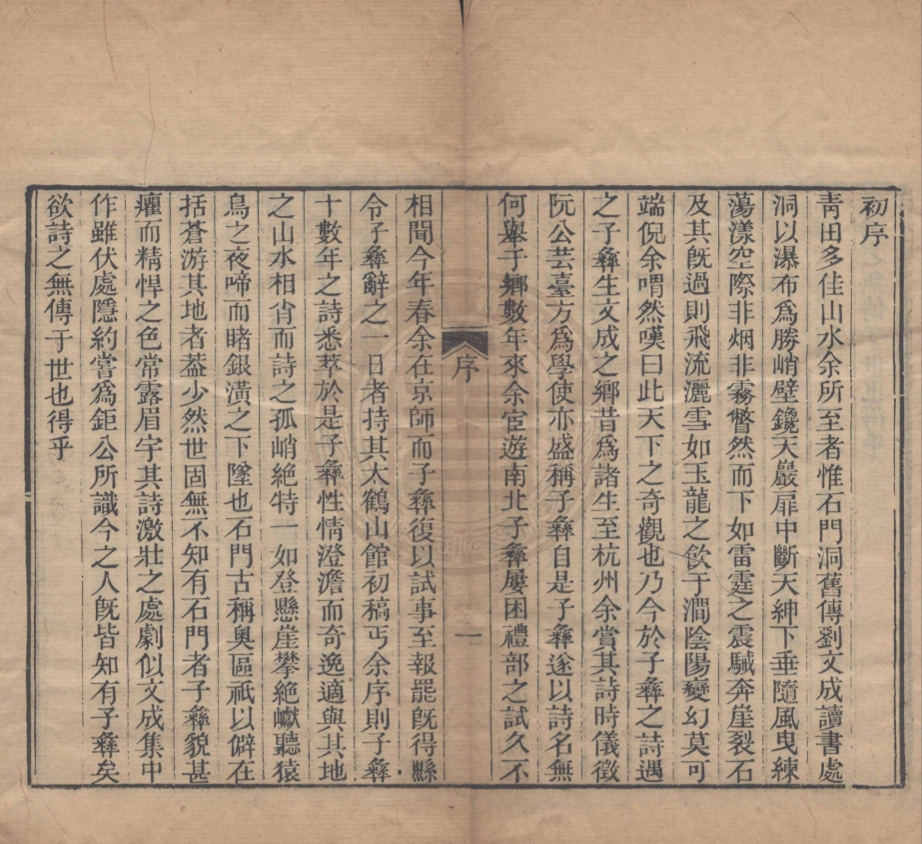 初序
青田多佳山水余所至者惟石門洞舊傳劉文成讀書處
洞以瀑布爲勝峭壁鑱天巖扉中斷天紳下垂隨風曳練
蕩漾空際非烟非霧瞥然而下如雷霆之震駴奔崖裂石
及其旣過則飛流灑雪如玉龍之飲于澗陰陽變幻莫可
端倪余喟然嘆曰此天下之奇觀也乃今於子彝之詩遇
之子彝生文成之鄉昔爲諸生至杭州余賞其詩時儀徵
阮公芸臺方爲學使亦盛稱子彝自是子彝遂以詩名無
何舉于鄉數年來余宦遊南北子彝屢困禮部之試久不
序
一
相聞今年春余在京師而子彝復以試事至報罷旣得縣
令子彝辭之一日者持其太鶴山館初稿丐余序則子彝
十數年之詩悉萃於是子彝性情澄澹而奇逸適與其地
之山水相肖而詩之孤峭絶特一如登懸崖攀絶巘聽猿
鳥之夜啼而睹銀潢之下墜也石門古稱奧區祇以僻在
括蒼游其地者葢少然世固無不知有石門者子彝貌甚
癯而精悍之色常露眉宇其詩激壯之處劇似文成集中
作雖伏處隱約嘗爲鉅公所識今之人旣皆知有子彝矣
欲詩之無傳于世也得乎